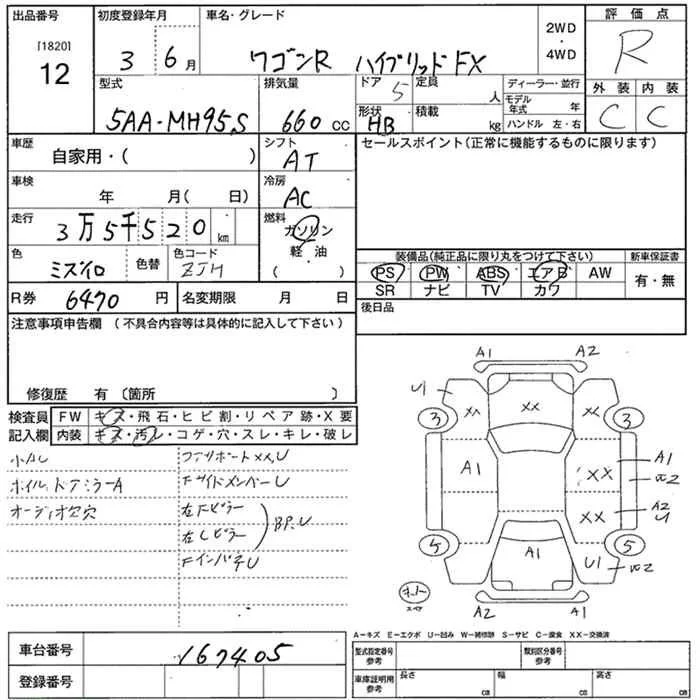 出品番号
[1820]
12
初度登録年月
3 6月
車名・グレード
ワゴンR ハイブリッドFX
2WD
・
4WD
評価点
R
外装 内装
C C
型式
5AA-MH95S
排気量
660 cc
ドア 5
定員 人
形状 HB
積載 kg
ディーラー・並行
モデル年式 年
ハンドル 左・右
車歴
自家用・( )
シフト
AT
セールスポイント(正常に機能するものに限ります)
車検
年 月( 日)
冷房
AC
走行
3万5千520 km
燃料
ガソリン
軽・油
( )
色
ミズイロ
色替
色コード
ZJH
装備品(純正品に限り丸をつけて下さい)
新車保証書
PS PW ABS エアB AW
SR ナビ TV カワ
有・無
R券 6470 円
名変期限 月 日
後日品
注意事項申告欄 (不具合内容等は具体的に記入して下さい)
修復歴 有 (箇所 )
検査員
記入欄
FW キズ・飛石・ヒビ割・リペア跡・X要
内装 キズ・汚レ・コゲ・穴・スレ・キレ・破レ
小AU
ホイル、ドアミラーA
オーディオ欠穴
コアサポートxx,U
FサイドメンバーU
左Fピラー
左Cピラー
BP.U
FインパネU
A1 A2
U1
xx xx xx
3 3
A1 xx A1
W2
xx A2
U
5 5
A1 U1 W2
スペア
A2 A1
A-キズ E-エクボ U-凹み W-補修跡 S-サビ C-腐食 XX-交換済
車台番号
167405
登録番号
型式指定番号
参考
類別区分番号
参考
車庫証明用
参考
長さ cm
幅 cm
高さ cm